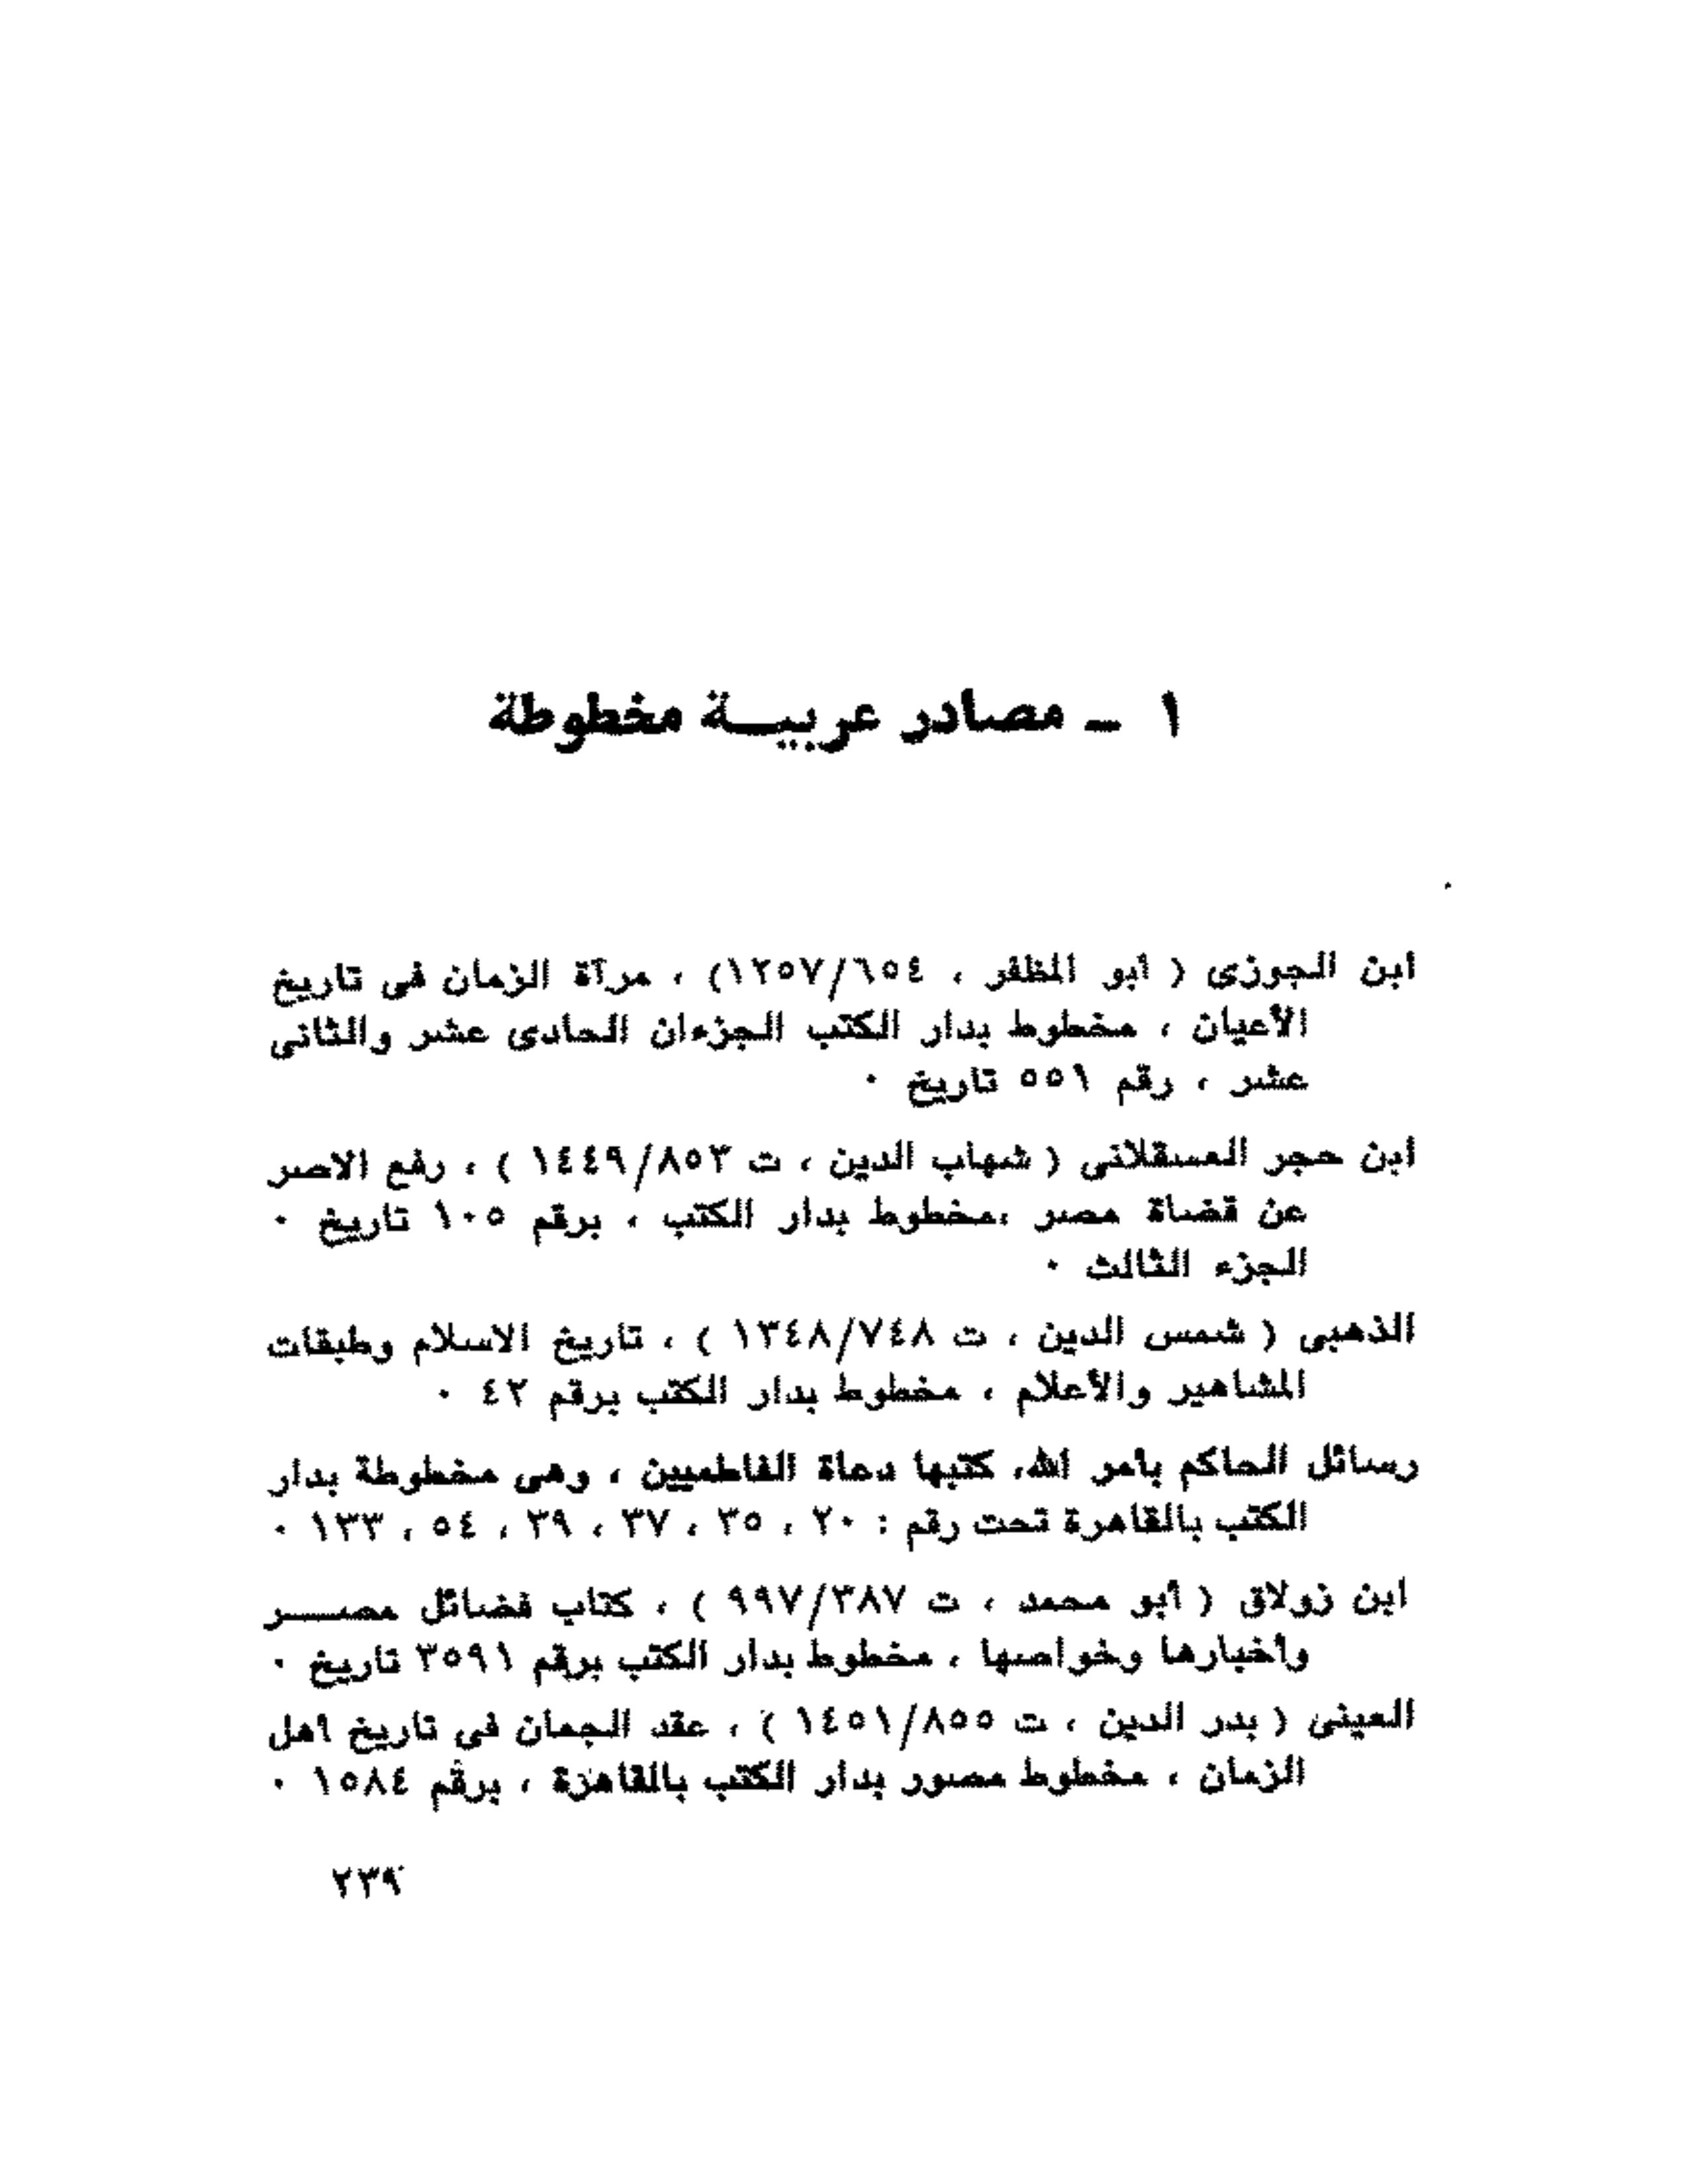 ١ ــ مصادر عربيــة مخطوطة
ابن الجوزى ( أبو المظفر ، ١٢٥٧/٦٥٤) ، مرآة الزمان فى تاريخ
الأعيان ، مخطوط بدار الكتب الجزءان الحادى عشر والثانى
عشر ، رقم ٥٥١ تاريخ ٠
ابن حجر العسقلانى ( شهاب الدين ، ت ١٤٤٩/٨٥٣ ) ، رفع الاصر
عن قضاة مصر ،مخطوط بدار الكتب ، برقم ١٠٥ تاريخ ٠
الجزء الثالث ٠
الذهبى ( شمس الدين ، ت ١٣٤٨/٧٤٨ ) ، تاريخ الاسلام وطبقات
المشاهير والأعلام ، مخطوط بدار الكتب برقم ٤٢ ٠
رسائل الحاكم بأمر الله، كتبها دعاة الفاطميين ، وهى مخطوطة بدار
الكتب بالقاهرة تحت رقم : ٢٠ ، ٣٥ ، ٣٧ ، ٣٩ ، ٥٤ ، ١٣٣ ٠
ابن زولاق ( أبو محمد ، ت ٩٩٧/٣٨٧ ) ، كتاب فضائل مصــــر
وأخبارها وخواصها ، مخطوط بدار الكتب برقم ٣٥٩١ تاريخ ٠
العينى ( بدر الدين ، ت ١٤٥١/٨٥٥ ) ، عقد الجمان فى تاريخ أهل
الزمان ، مخطوط مصور بدار الكتب بالقاهرة ، برقم ١٥٨٤ ٠
٢٣٩